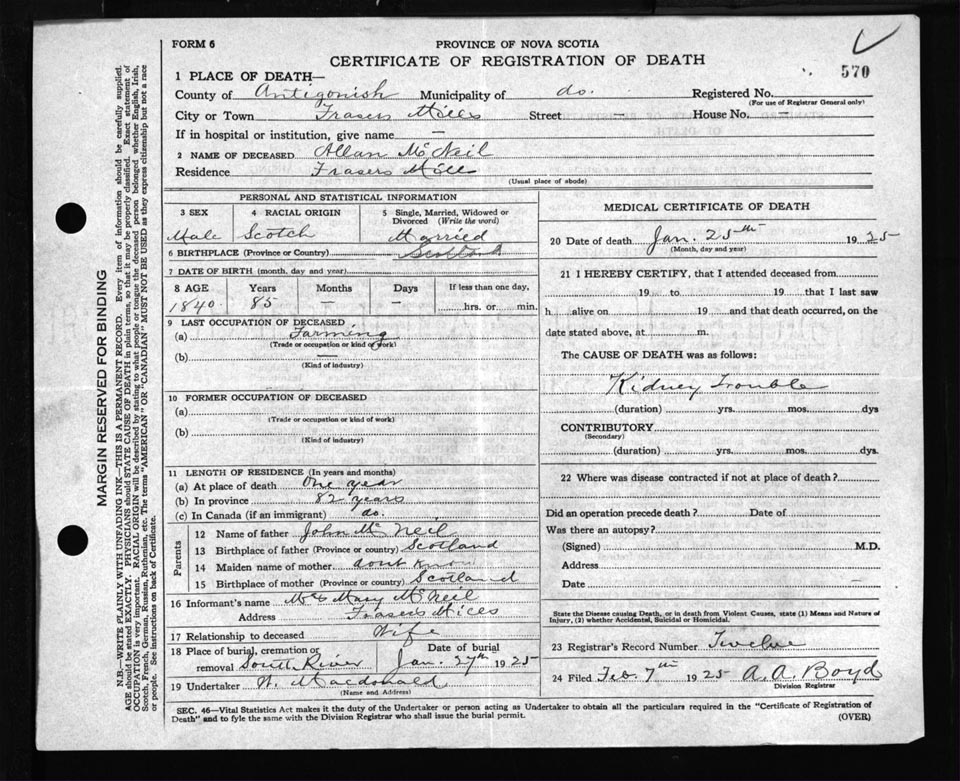 FORM 6
PROVINCE OF NOVA SCOTIA
CERTIFICATE OF REGISTRATION OF DEATH
570
1 PLACE OF DEATH—
County of Antigonish Municipality of do. Registered No.
(For use of Registrar General only)
City or Town Frasers Mills Street — House No. —
If in hospital or institution, give name —
2 NAME OF DECEASED Allan McNeil
Residence Frasers Mills
(Usual place of abode)
PERSONAL AND STATISTICAL INFORMATION
3 SEX 4 RACIAL ORIGIN 5 Single, Married, Widowed or Divorced (Write the word)
Male Scotch Married
6 BIRTHPLACE (Province or Country) Scotland
7 DATE OF BIRTH (month, day and year)
8 AGE Years Months Days If less than one day,
1840 85 — — hrs. or min.
9 LAST OCCUPATION OF DECEASED
(a) Farming
(Trade or occupation or kind of work)
(b) —
(Kind of industry)
10 FORMER OCCUPATION OF DECEASED
(a)
(Trade or occupation or kind of work)
(b)
(Kind of industry)
11 LENGTH OF RESIDENCE (In years and months)
(a) At place of death One year
(b) In province 82 years
(c) In Canada (if an immigrant) do.
Parents
12 Name of father John McNeil
13 Birthplace of father (Province or country) Scotland
14 Maiden name of mother dont know
15 Birthplace of mother (Province or country) Scotland
16 Informant's name Mrs Mary McNeil
Address Frasers Mills
17 Relationship to deceased Wife
18 Place of burial, cremation or removal South River Date of burial Jan. 27th 1925
19 Undertaker W. Macdonald
(Name and Address)
MEDICAL CERTIFICATE OF DEATH
20 Date of death Jan. 25th 1925
(Month, day and year)
21 I HEREBY CERTIFY, that I attended deceased from
19 to 19 that I last saw
h alive on 19 and that death occurred, on the
date stated above, at m.
The CAUSE OF DEATH was as follows:
Kidney Trouble
(duration) yrs. mos. dys
CONTRIBUTORY
(Secondary)
(duration) yrs. mos. dys.
22 Where was disease contracted if not at place of death?
Did an operation precede death? Date of
Was there an autopsy?
(Signed) M.D.
Address
Date
State the Disease causing Death, or in death from Violent Causes, state (1) Means and Nature of
Injury, (2) whether Accidental, Suicidal or Homicidal.
23 Registrar's Record Number Twelve
24 Filed Feb. 7th 1925 A. A. Boyd
Division Registrar
SEC. 46—Vital Statistics Act makes it the duty of the Undertaker or person acting as Undertaker to obtain all the particulars required in the "Certificate of Registration of
Death" and to fyle the same with the Division Registrar who shall issue the burial permit.
(OVER)
MARGIN RESERVED FOR BINDING
N.B.—WRITE PLAINLY WITH UNFADING INK—THIS IS A PERMANENT RECORD. Every item of information should be carefully supplied.
AGE should be stated EXACTLY. PHYSICIANS should STATE CAUSE OF DEATH in plain terms, so that it may be properly classified. Exact statement of
OCCUPATION is very important. RACIAL ORIGIN will be described by stating to what people or tongue the deceased person belonged whether English, Irish,
Scotch, French, German, Russian, Ruthenian, etc. The terms "AMERICAN" OR "CANADIAN" MUST NOT BE USED as they express citizenship but not a race
or people. See instructions on back of Certificate.